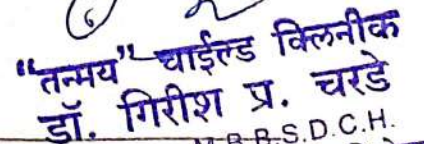 6
"तन्मय" चाईल्ड क्लिनीक
डॉ. गिरीश प्र. चरडे
M.B.B.S.D.C.H.